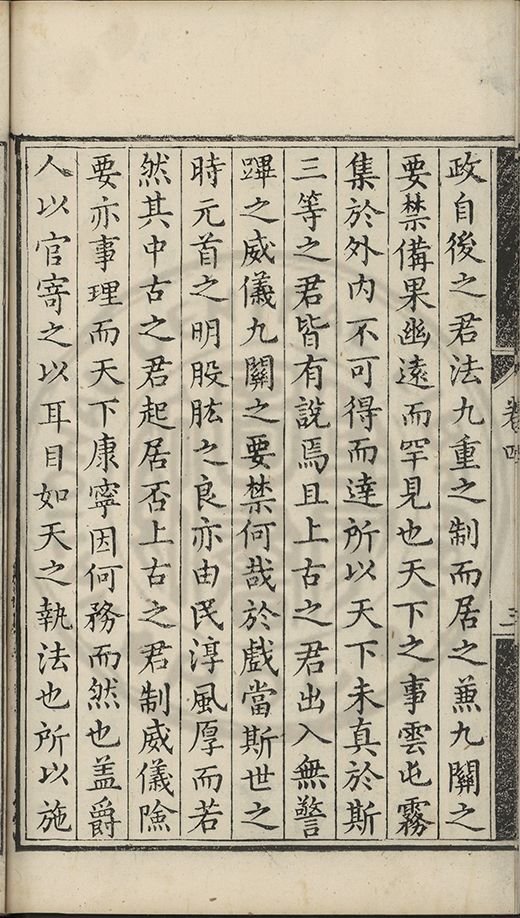 政自後之君法九重之制而居之兼九關之
要禁備果幽遠而罕見也天下之事雲屯霧
集於外内不可得而達所以天下未真於斯
三等之君皆有說焉且上古之君出入無警
蹕之威儀九關之要禁何哉於戲當斯世之
時元首之明股肱之良亦由民淳風厚而若
然其中古之君起居否上古之君制威儀險
要亦事理而天下康寧因何務而然也盖爵
人以官寄之以耳目如天之執法也所以施